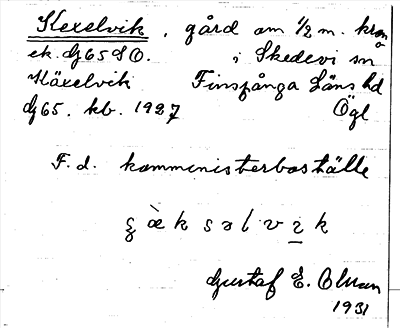 Kexelvik, gård om 1/2 m. kron
ek. dj 65 SO. i Skedevi sn
Käxelvik Finspånga Läns hd
dj 65. kb. 1927 Ögl
F. d. komministerboställe
Gustaf E. Olman
1931